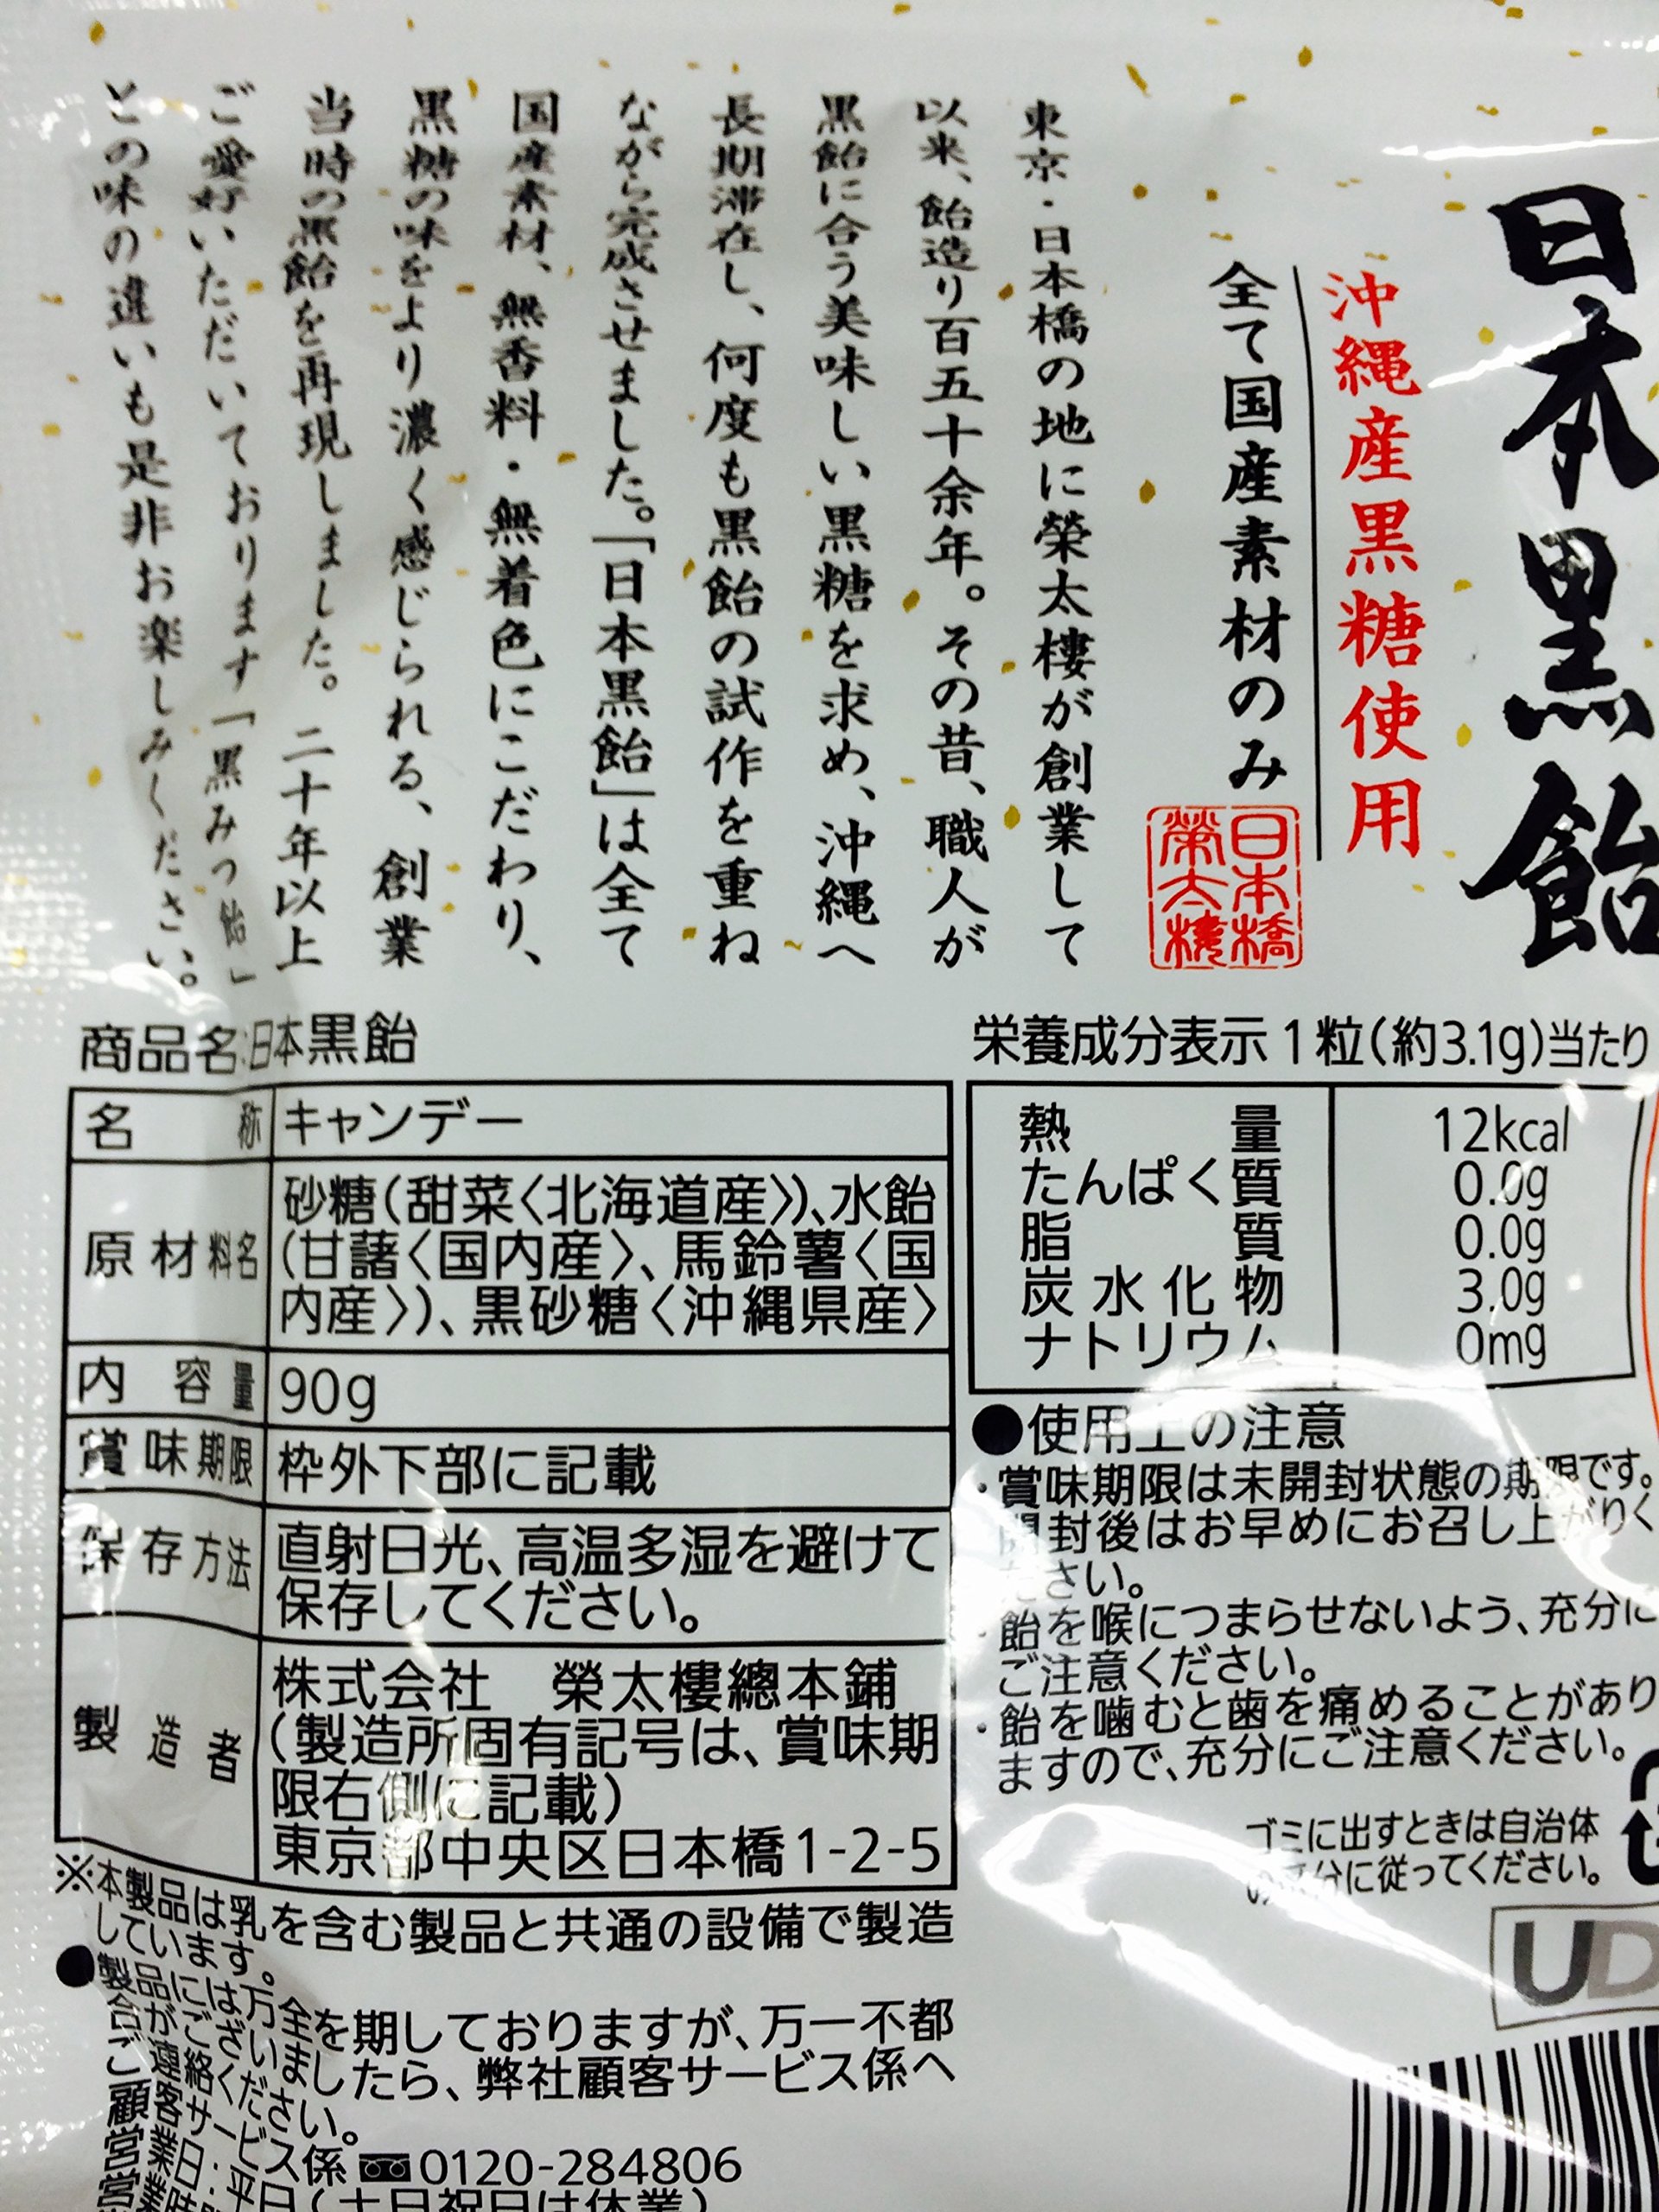 日本黒飴
沖縄産黒糖使用
全て国産素材のみ
日本橋
榮太樓
東京・日本橋の地に榮太樓が創業して
以来、飴造り百五十余年。その昔、職人が
黒飴に合う美味しい黒糖を求め、沖縄へ
長期滞在し、何度も黒飴の試作を重ね
ながら完成させました。「日本黒飴」は全て
国産素材、無香料・無着色にこだわり、
黒糖の味をより濃く感じられる、創業
当時の黒飴を再現しました。二十年以上
ご愛好いただいております「黒みつ飴」
との味の違いも是非お楽しみください。
商品名:日本黒飴
名称 キャンデー
原材料名 砂糖(甜菜〈北海道産〉)、水飴
(甘藷〈国内産〉、馬鈴薯〈国
内産〉)、黒砂糖〈沖縄県産〉
内容量 90g
賞味期限 枠外下部に記載
保存方法 直射日光、高温多湿を避けて
保存してください。
製造者 株式会社 榮太樓總本鋪
(製造所固有記号は、賞味期
限右側に記載)
東京都中央区日本橋1-2-5
※本製品は乳を含む製品と共通の設備で製造
しています。
●製品には万全を期しておりますが、万一不都
合がございましたら、弊社顧客サービス係へ
ご連絡ください。
顧客サービス係 0120-284806
営業日:平日(土日祝日は休業)
栄養成分表示1粒(約3.1g)当たり
熱量 12kcal
たんぱく質 0.0g
脂質 0.0g
炭水化物 3.0g
ナトリウム 0mg
●使用上の注意
・賞味期限は未開封状態の期限です。
開封後はお早めにお召し上がりく
ださい。
・飴を喉につまらせないよう、充分に
ご注意ください。
・飴を噛むと歯を痛めることがあり
ますので、充分にご注意ください。
ゴミに出すときは自治体
の区分に従ってください。
UD